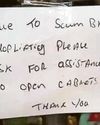 ue To Scum B
ropliating Please
sk for assistance
o open cabinets
Thank you